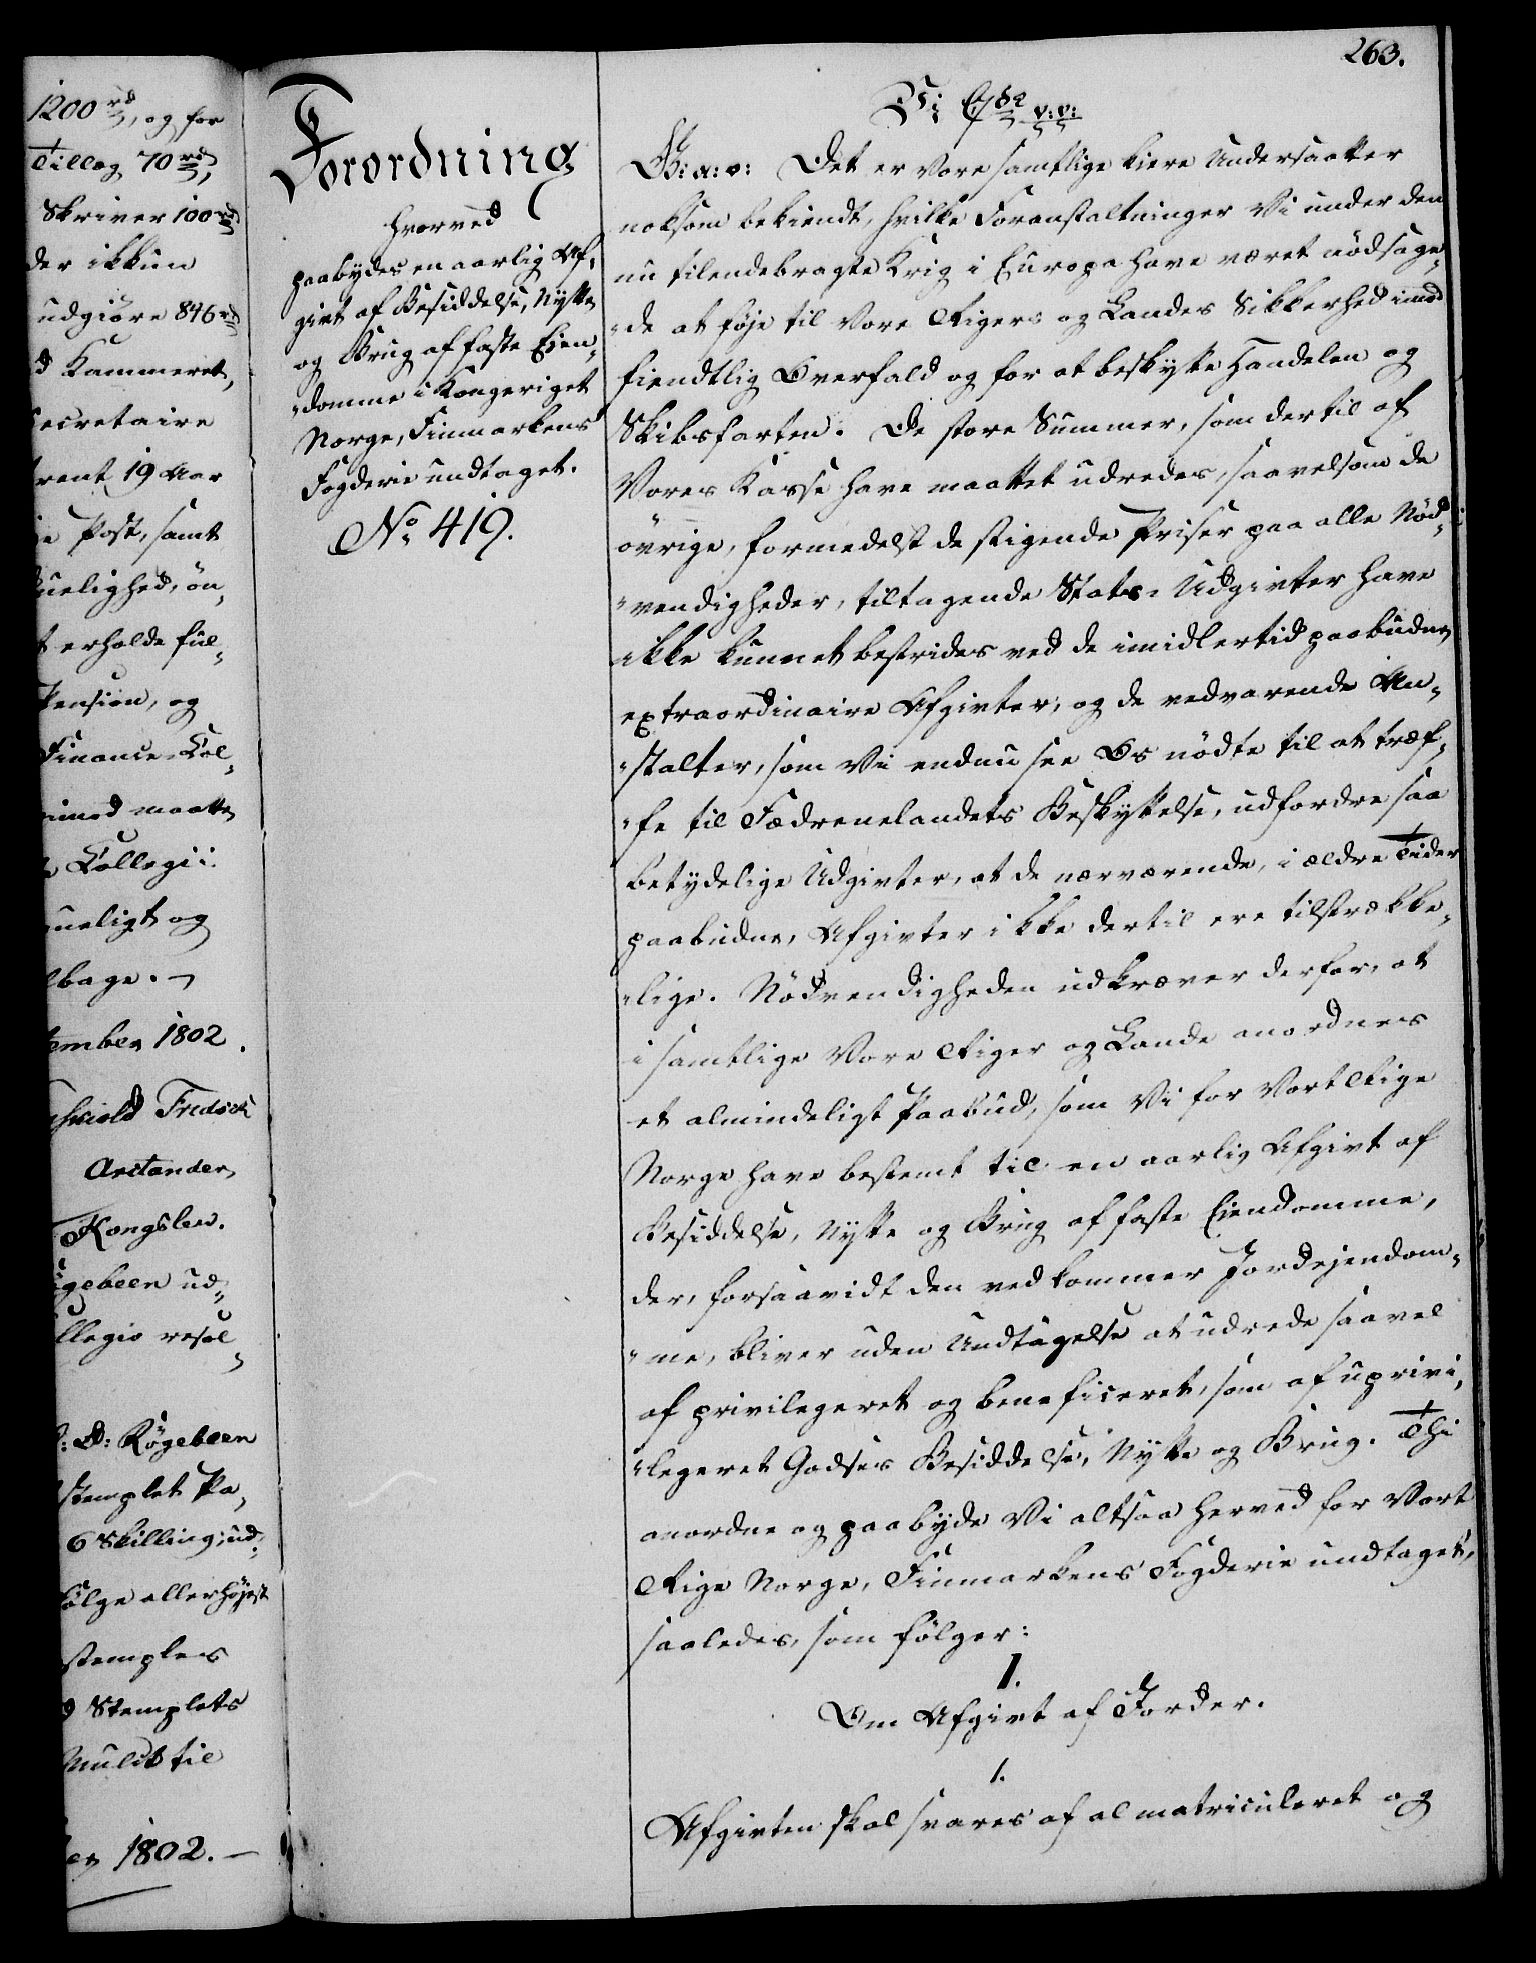 1200 rd, og for
Tillæg 70 rd,
Skriver 100 rd
der ikkun
udgiøre 846 rd
d Kammeret,
Secretaire
rent 19 Aar
e Post, samt
uelighed, øn,,
t erholde ful,,
Pension, og
Finance-Col,,
imod maatte
Collegii
ueligt og
lbage. -
tember 1802.
Fredsch
Arctander,
Kongslew.
gebeen ud,,
llegio resol,,
: D: Røgebeen
stemplet Pa,,
6 Skilling, ud,,
følge allerhøjest
stemples
d Stemplets
Mulct til
er 1802. -
263.
Forordning
hvorved
paabydes en aarlig Af,,
givt af Besiddelse, Nytte
og Brug af faste Eien,,
,,domme i Kongeriget
Norge, Finmarkens
Fogderie undtaget.
No 419.
Vi C 7de v: v:
G: a: v: Det er Vore samtlige kiere Undersaatter
noksom bekiendt, hvilke Foranstaltninger Vi under den
nu tilendebragte Krig i Europa have været nødsage,,
,,de at føje til Vore Rigers og Landes Sikkerhed imod
fiendtlig Overfald og for at beskytte Handelen og
Skibsfarten. De store Summer, som dertil af
Vores Kasse have maattet udredes, saavelsom de
øvrige, formedelst de stigende Priser paa alle Nød,,
,,vendigheder, tiltagende Stats-Udgivter have
ikke kunnet bestrides ved de imidlertid paabudne
extraordinaire Afgivter, og de vedvarende An,,
,,stalter, som Vi endnu see Os nødte til at træf,,
,,fe til Fædrenelandets Beskyttelse, udfordre saa
betydelige Udgivter, at de nærværende, i ældre Tider
paabudne, Afgivter ikke dertil ere tilstrække,,
,,lige. Nødvendigheden udkræver derfor, at
i samtlige Vore Riger og Lande anordnes
et almindeligt Paabud, som Vi for Vort Rige
Norge have bestemt til en aarlig Afgivt af
Besiddelse, Nytte og Brug af faste Eiendomme,
der, forsaavidt den vedkommer Jordejendom,,
,,me, bliver uden Undtagelse at udrede saavel
af privilegeret og beneficeret, som af uprivi,,
,,legeret Godses Besiddelse, Nytte og Brug. Thi
anordne og paabyde Vi altsaa herved for Vort
Rige Norge, Finmarkens Fogderie undtaget,
saaledes, som følger:
I.
Om Afgivt af Jorder.
1.
Afgivten skal svares af al matriculeret og